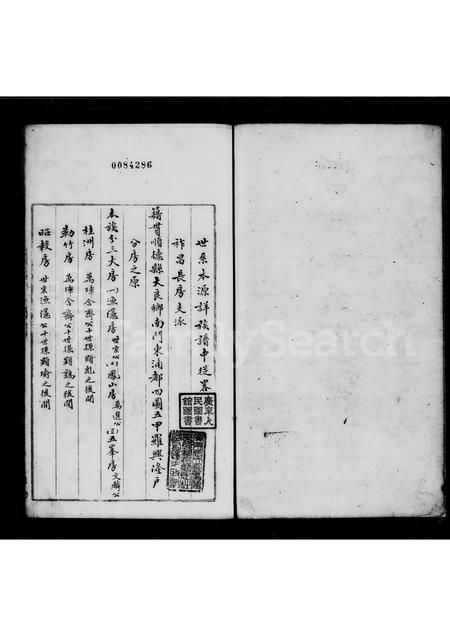 0084286
世系本源詳族譜中從畧
祚昌長房支派
籍貫順德縣大良鄉南門東涌都四圖五甲羅興隆戶
分房之原
本族分三大房(一)漁隱房世宗公(二)鳳山房萬進公(三)五峯房文麟公
桂洲房 萬瑋舍齋公十世孫顯彪之後開
勒竹房 萬瑋舍齋公十世孫顯鵠之後開
昭毅房 世宗漁隱公十世孫顯瑜之後開
廣東人民圖書館圖書
FamilySearch